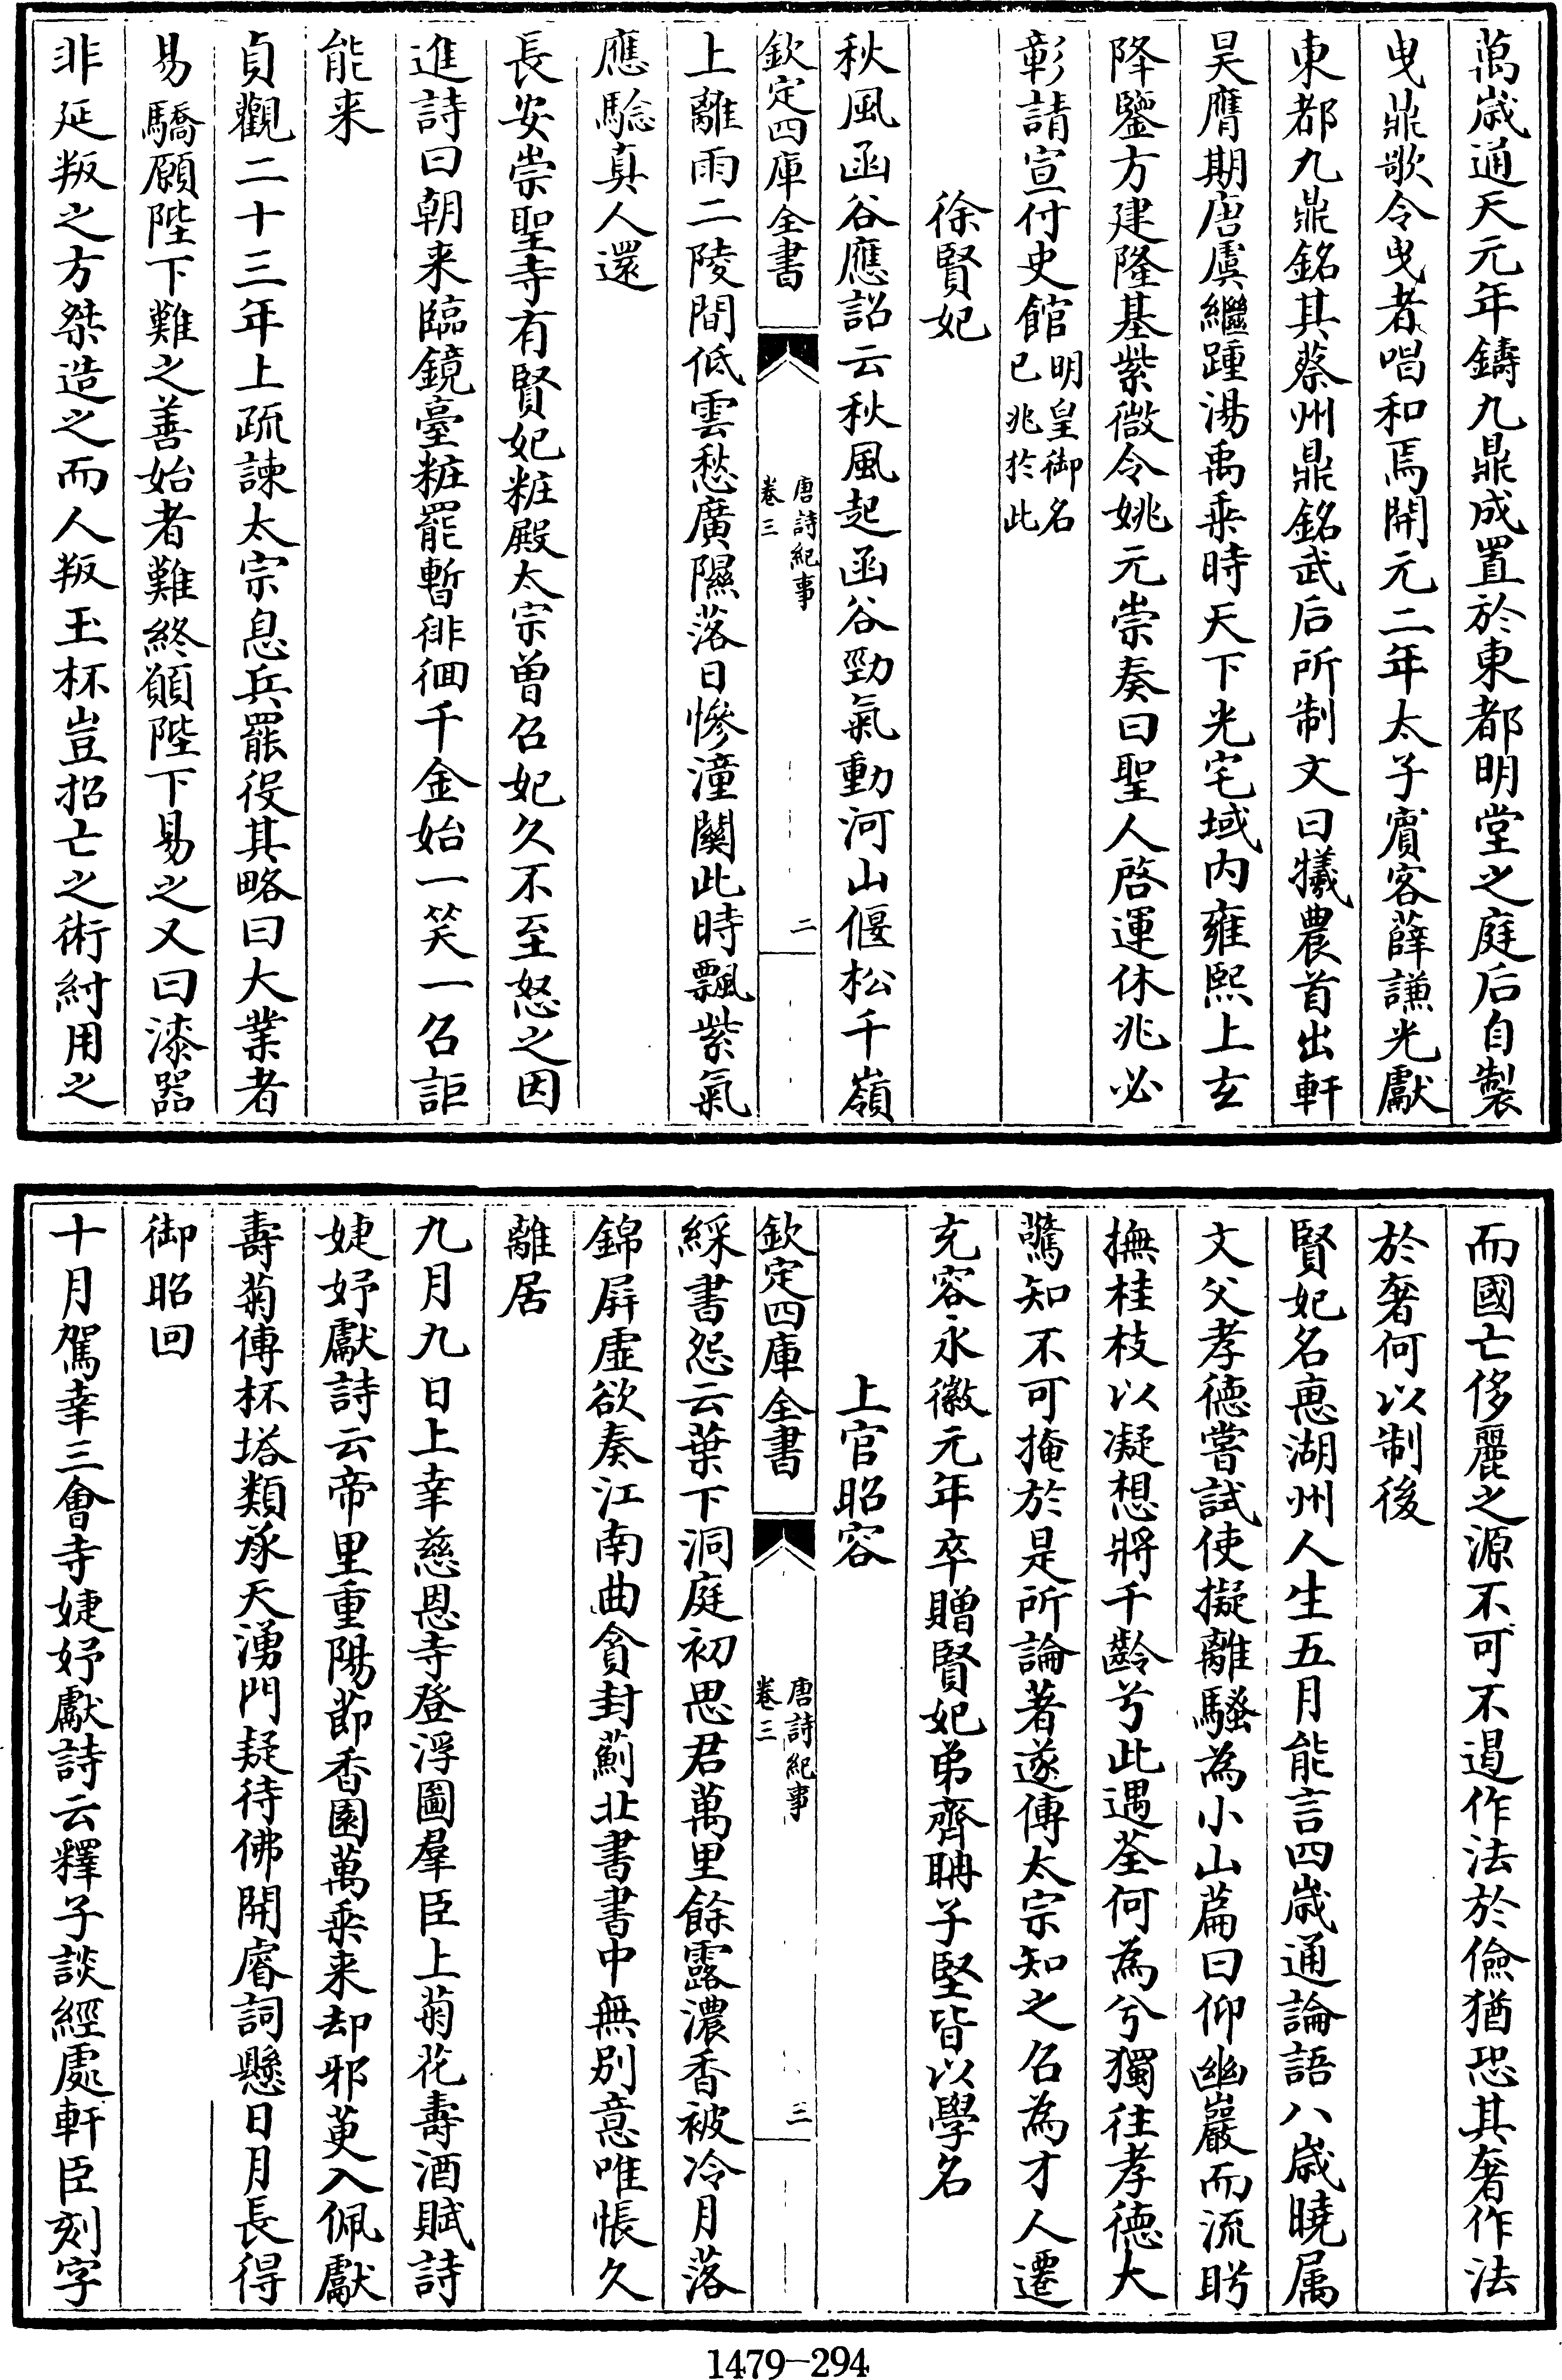 萬歳通天元年鑄九鼎成置於東都明堂之庭后自製
曳鼎歌令曳者唱和焉開元二年太子賓客薛謙光獻
東都九鼎銘其蔡州鼎銘武后所制文曰犧農首出軒
昊膺期唐虞繼踵湯禹乘時天下光宅域内雍熙上玄
降鑒方建隆基紫微令姚元崇奏曰聖人啓運休兆必
彰請宣付史館明皇御名已兆於此
徐賢妃
秋風函谷應詔云秋風起函谷勁氣動河山偃松千嶺
欽定四庫全書
唐詩紀事
卷三
二
上離雨二陵間低雲愁廣隰落日慘潼關此時飄紫氣
應騐真人還
長安崇聖寺有賢妃粧殿太宗曽召妃久不至怒之因
進詩曰朝来臨鏡臺粧罷暫徘徊千金始一笑一召詎
能来
貞觀二十三年上疏諫太宗息兵罷役其略曰大業者
易驕願陛下難之善始者難終願陛下易之又曰漆器
非延叛之方桀造之而人叛玉杯豈招亡之術紂用之
而國亡侈麗之源不可不遏作法於儉猶恐其奢作法
於奢何以制後
賢妃名惠湖州人生五月能言四歳通論語八歳曉属
文父孝德嘗試使擬離騷為小山篇曰仰幽巖而流盻
撫桂枝以凝想將千齡兮此遇荃何為兮獨往孝德大
驚知不可掩於是所論著遂傳太宗知之召為才人遷
充容永徽元年卒贈賢妃弟齊聃子堅皆以學名
上官昭容
欽定四庫全書
唐詩紀事
卷三
三
綵書怨云葉下洞庭初思君萬里餘露濃香被冷月落
錦屏虚欲奏江南曲貪封薊北書書中無别意唯悵久
離居
九月九日上幸慈恩寺登浮圖羣臣上菊花壽酒賦詩
婕妤獻詩云帝里重陽節香園萬乘来却邪萸入佩獻
壽菊傳杯塔類承天湧門疑待佛開睿詞懸日月長得
御昭回
十月駕幸三會寺婕妤獻詩云釋子談經處軒臣刻字
1479—294